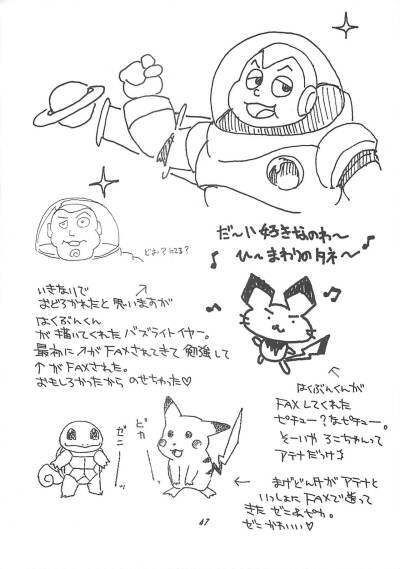 どお？にてる？
だ〜い好きなのわ〜
ひ〜まわりのタネ〜
いきないで
おどろかれたと思いますが
はくぶんくん
が描いてくれたバズライトイヤー。
最初に↗がFAXされてきて勉強して
↑がFAXされた。
おもしろかったからのせちゃった♡
はくぶんくんが
FAXしてくれた
ピチュー？なピチュー。
そーいや ろこちゃんって
アテナだっけ？
ゼニ
ピカ
← まげどん丼がアテナと
いっしょにFAXで送って
きた ぜにあピカ。
ぜに かわいい♡
67